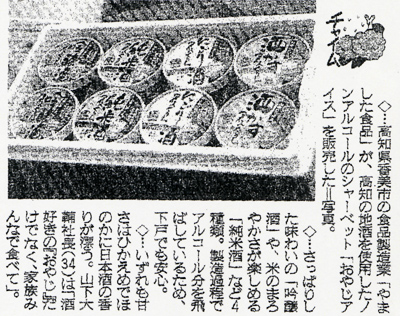 チャイム
◇…高知県香美市の食品製造業「やま
した食品」が、高知の地酒を使用したノ
ンアルコールのシャーベット「おやじア
イス」を販売した＝写真。
◇…さっぱりし
た味わいの「吟醸
酒」や、米のまろ
やかさが楽しめる
「純米酒」など4
種類。製造過程で
アルコール分を飛
ばしているため、
下戸でも安心。
◇…いずれも甘
さはひかえめでほ
のかに日本酒の香
りが漂う。山下大
社長(34)は「酒
好きの『おやじ』だ
けでなく、家族み
んなで食べて」。
純米酒
にごり酒
酒かす
純米酒
にごり酒
酒かす